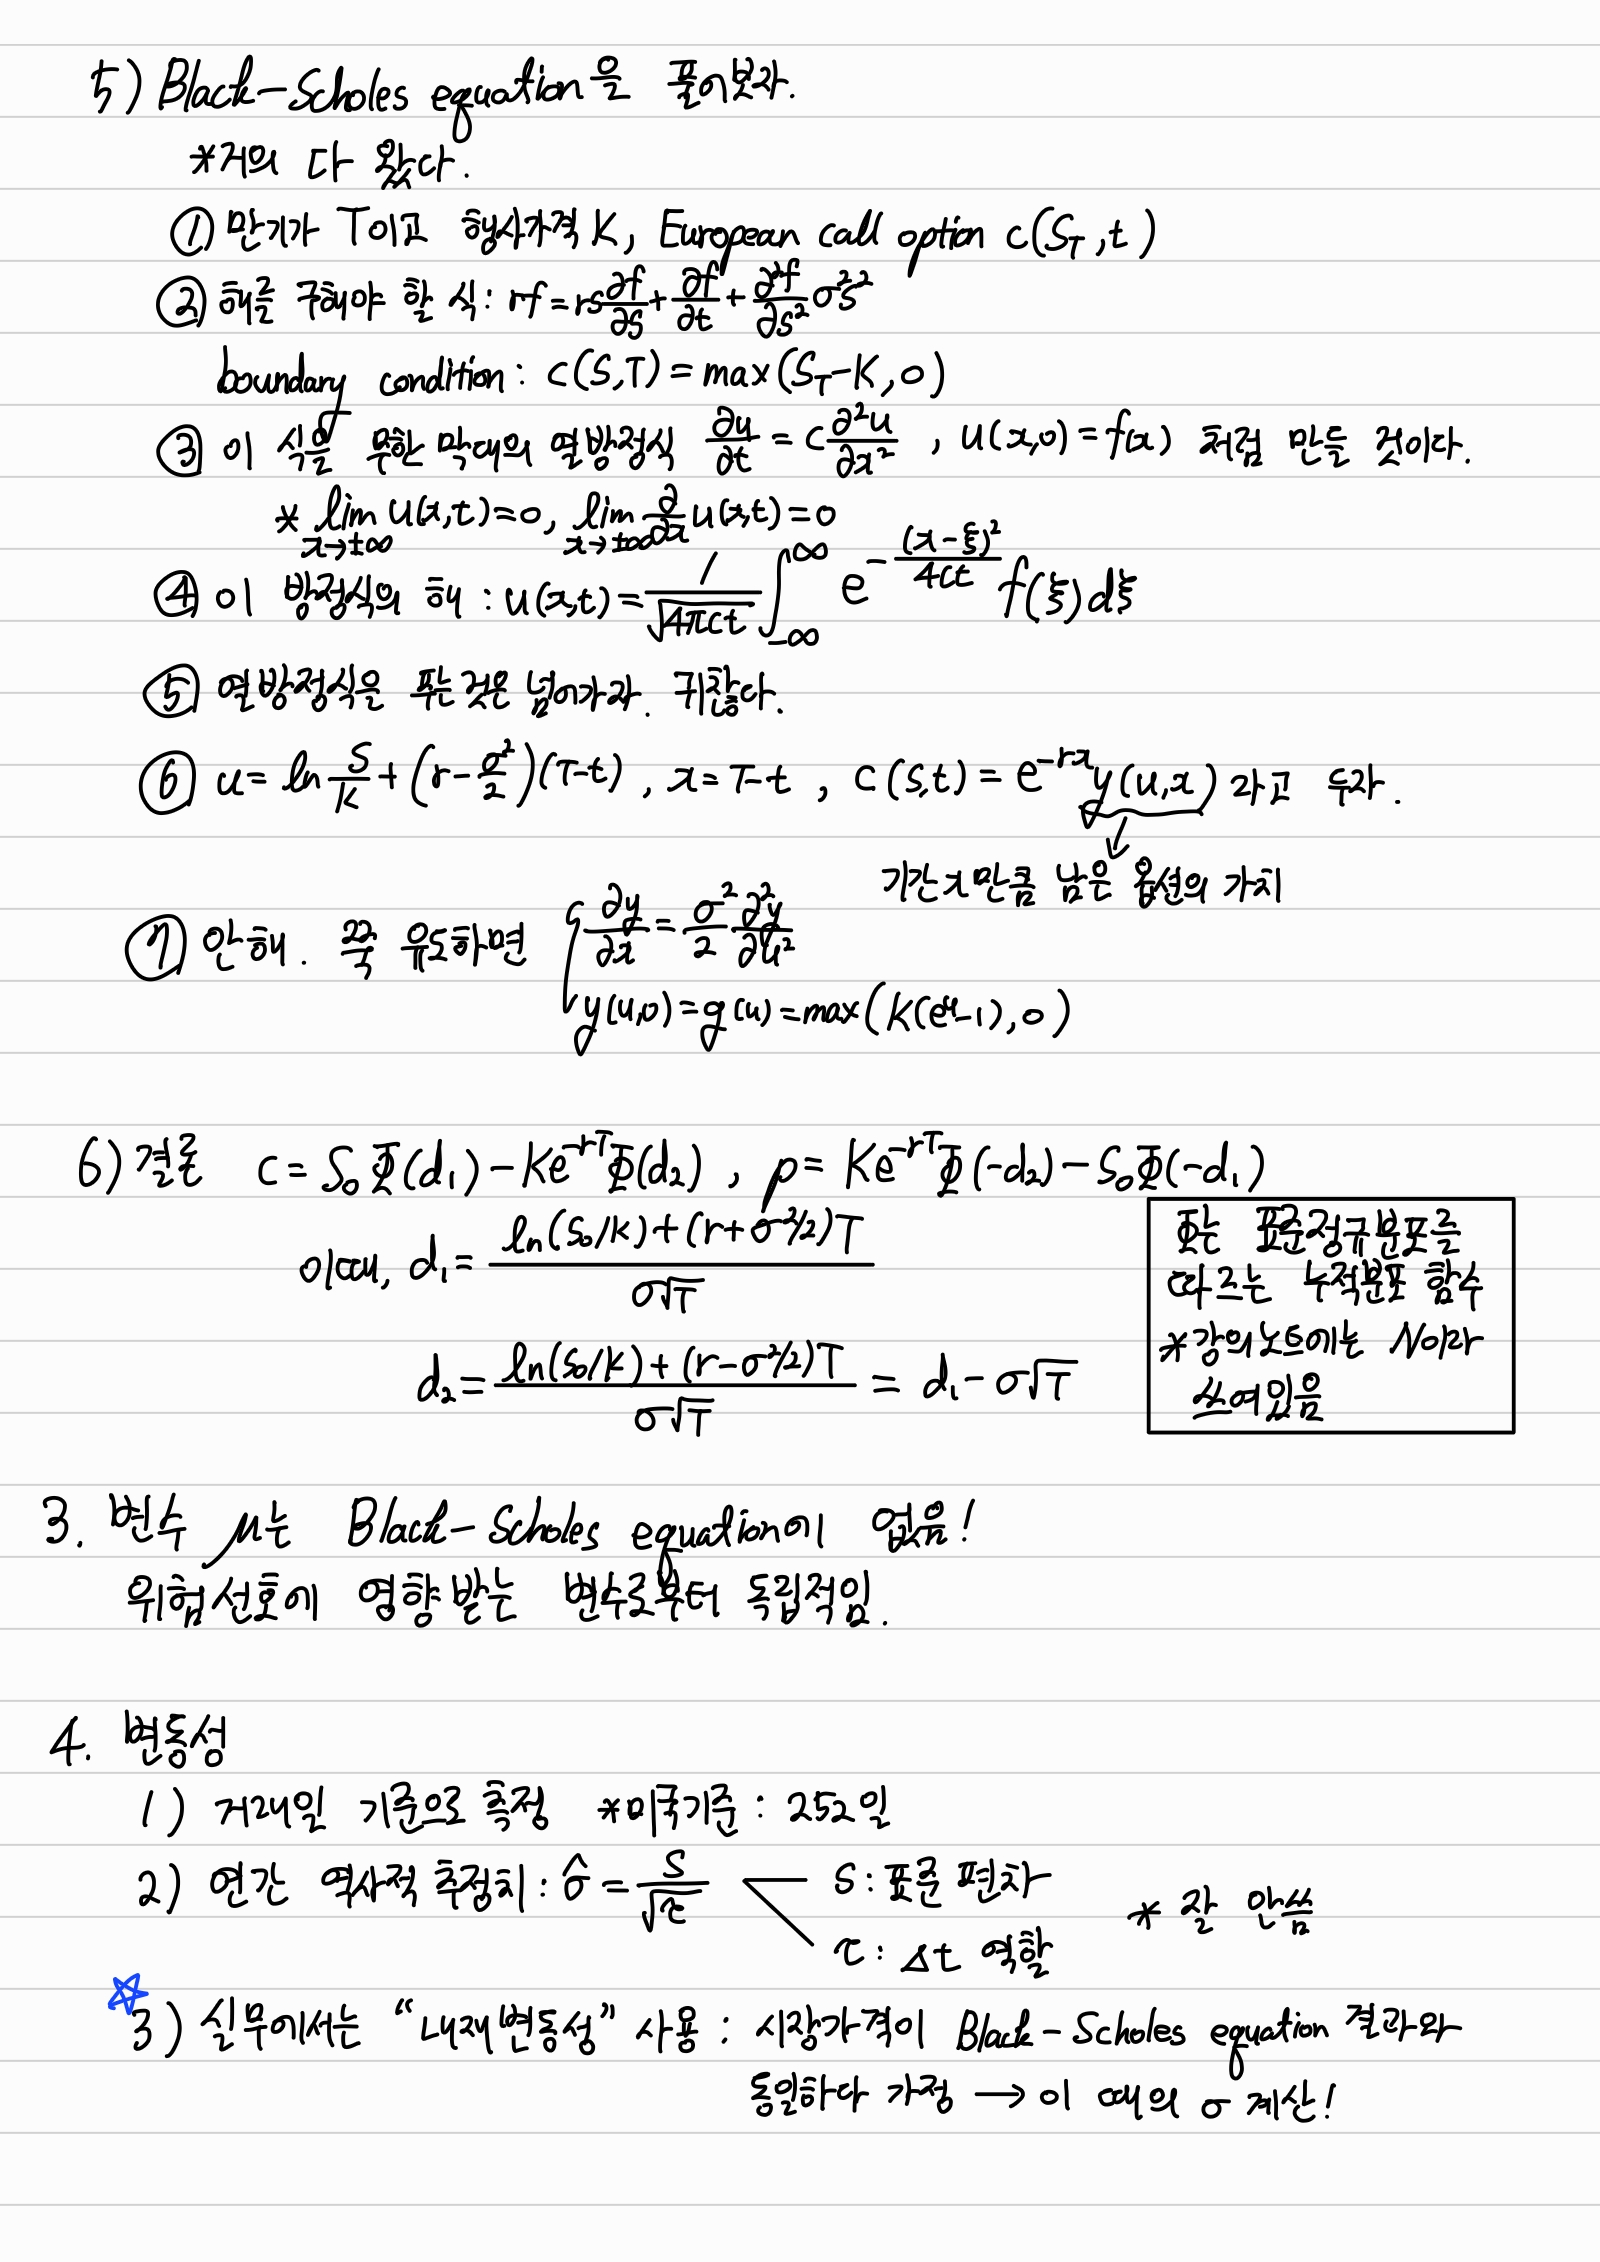 5) Black-Scholes equation을 풀어보자.
*거의 다 왔다.
① 만기가 T이고 행사가격 K, European call option c(S_T, t)
② 해를 구해야 할 식: rf = rS ∂f/∂S + ∂f/∂t + ∂²f/∂S² σ²S²
boundary condition: c(S,T) = max(S_T-K, 0)
③ 이 식을 무한 막대의 열방정식 ∂u/∂t = c ∂²u/∂x² , u(x,0) = f(x) 처럼 만들 것이다.
* lim_{x→±∞} u(x,t)=0, lim_{x→±∞} ∂/∂x u(x,t)=0
④ 이 방정식의 해 : u(x,t) = 1/√(4πct) ∫_{-∞}^{∞} e^{-(x-ξ)²/4ct} f(ξ)dξ
⑤ 열방정식은 푸는 것은 넘어가자. 귀찮다.
⑥ u = ln S/K + (r - σ²/2)(T-t) , x = T-t , c(S,t) = e^{-rx} y(u,x) 라고 두자.
↓
기간 x만큼 남은 옵션의 가치
⑦ 안해. 쭉 유도하면 { ∂y/∂x = σ²/2 ∂²y/∂u²
y(u,0) = g(u) = max(K(e^u-1), 0)
6) 결론 c = S₀Φ(d₁) - Ke^{-rT}Φ(d₂) , p = Ke^{-rT}Φ(-d₂) - S₀Φ(-d₁)
이때, d₁ = (ln(S₀/K) + (r+σ²/2)T) / σ√T
d₂ = (ln(S₀/K) + (r-σ²/2)T) / σ√T = d₁ - σ√T
Φ는 표준정규분포를
따르는 누적분포 함수
*강의노트에는 N이라
쓰여있음
3. 변수 μ는 Black-Scholes equation이 없음!
위험선호에 영향 받는 변수로부터 독립적임.
4. 변동성
1) 거래일 기준으로 측정 *미국기준 : 252일
2) 연간 역사적 추정치 : σ̂ = S/√τ
S : 표준 편차
τ : Δt 역할
* 잘 안씀
☆ 3) 실무에서는 “내재변동성” 사용 : 시장가격이 Black-Scholes equation 결과와
동일하다 가정 → 이 때의 σ 계산!